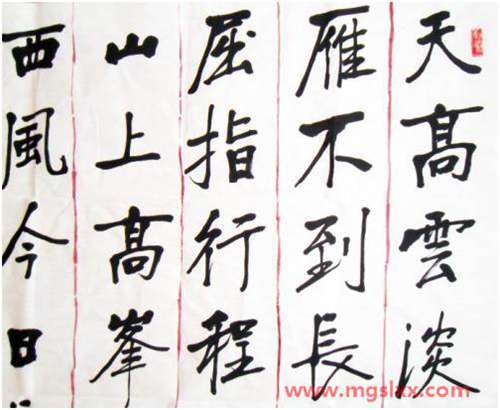 天高雲淡
雁不到長
屈指行程
山上高峯
西風今日
www.mgslxx.com